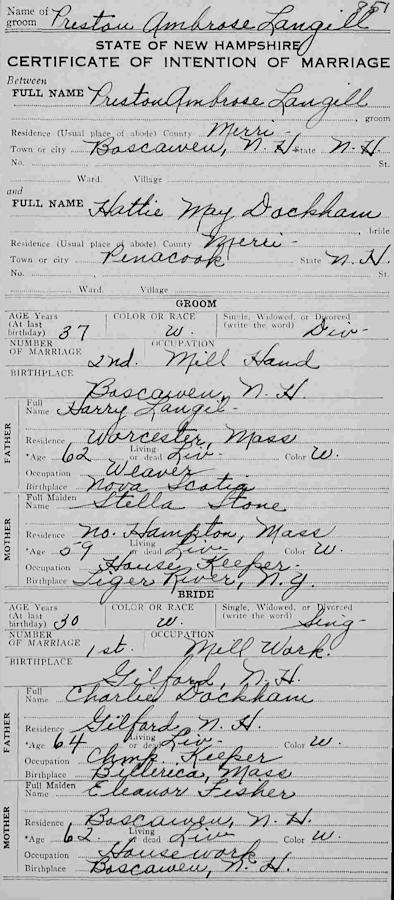 Name of groom Preston Ambrose Langill
STATE OF NEW HAMPSHIRE
CERTIFICATE OF INTENTION OF MARRIAGE
Between
FULL NAME Preston Ambrose Langill
, groom
Residence (Usual place of abode) County Merri-
Town or city Boscawen, N.H. State N.H.
No. St.
Ward. Village
and
FULL NAME Hattie May Dockham
, bride
Residence (Usual place of abode) County Merri-
Town or city Penacook State N.H.
No. St.
Ward. Village
GROOM
AGE Years (At last birthday) 37 COLOR OR RACE W. Single, Widowed, or Divorced (write the word) Div-
NUMBER OF MARRIAGE 2nd. OCCUPATION Mill Hand
BIRTHPLACE Boscawen, N.H.
FATHER
Full Name Harry Langil-
Residence Worcester, Mass
*Age 62 Living or dead Liv- Color W.
Occupation Weaver
Birthplace Nova Scotia
MOTHER
Full Maiden Name Stella Stone
Residence No. Hampton, Mass
*Age 59 Living or dead Live Color W.
Occupation House Keeper-
Birthplace Tiger River, N.
BRIDE
AGE Years (At last birthday) 30 COLOR OR RACE W. Single, Widowed, or Divorced (write the word) Sing-
NUMBER OF MARRIAGE 1st. OCCUPATION Mill Work.
BIRTHPLACE Gilford, N.H.
FATHER
Full Name Charlie Dockham
Residence Gilford, N.H.
*Age 64 Living or dead Liv- Color W.
Occupation Keeper
Birthplace Billerica, Mass
MOTHER
Full Maiden Name Eleanor Fisher
Residence Boscawen, N.H.
*Age 62. Living or dead Liv Color W.
Occupation Housework
Birthplace Boscawen, N.H.